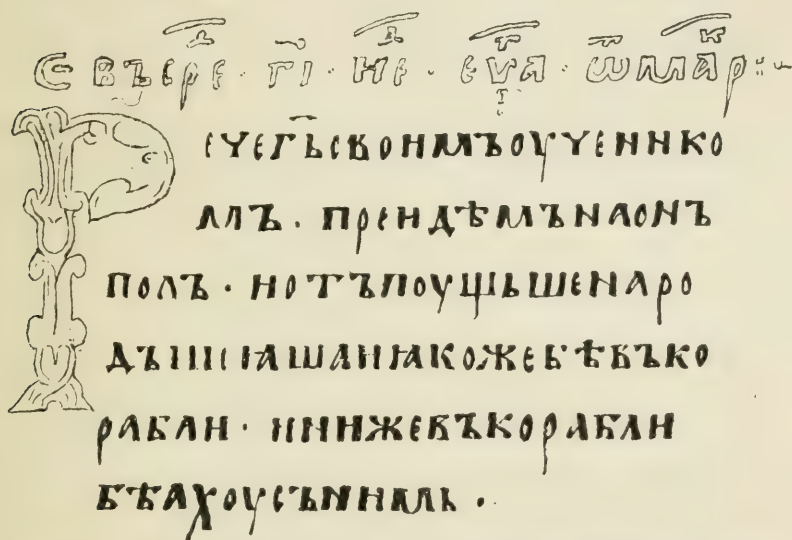 С въ срєд · г҃і · нєд · єѵг҃а · ѿ мар̅к :~
Рєчєг҃ьсвоимъоучєнико
мъ · прєидѣмънаонъ
полъ · иотъпоущьшєнаро
дъıиєꙗшаиꙗкожєбѣвъко
рабли · иинижєвъкорабли
бѣахоусънимь ·